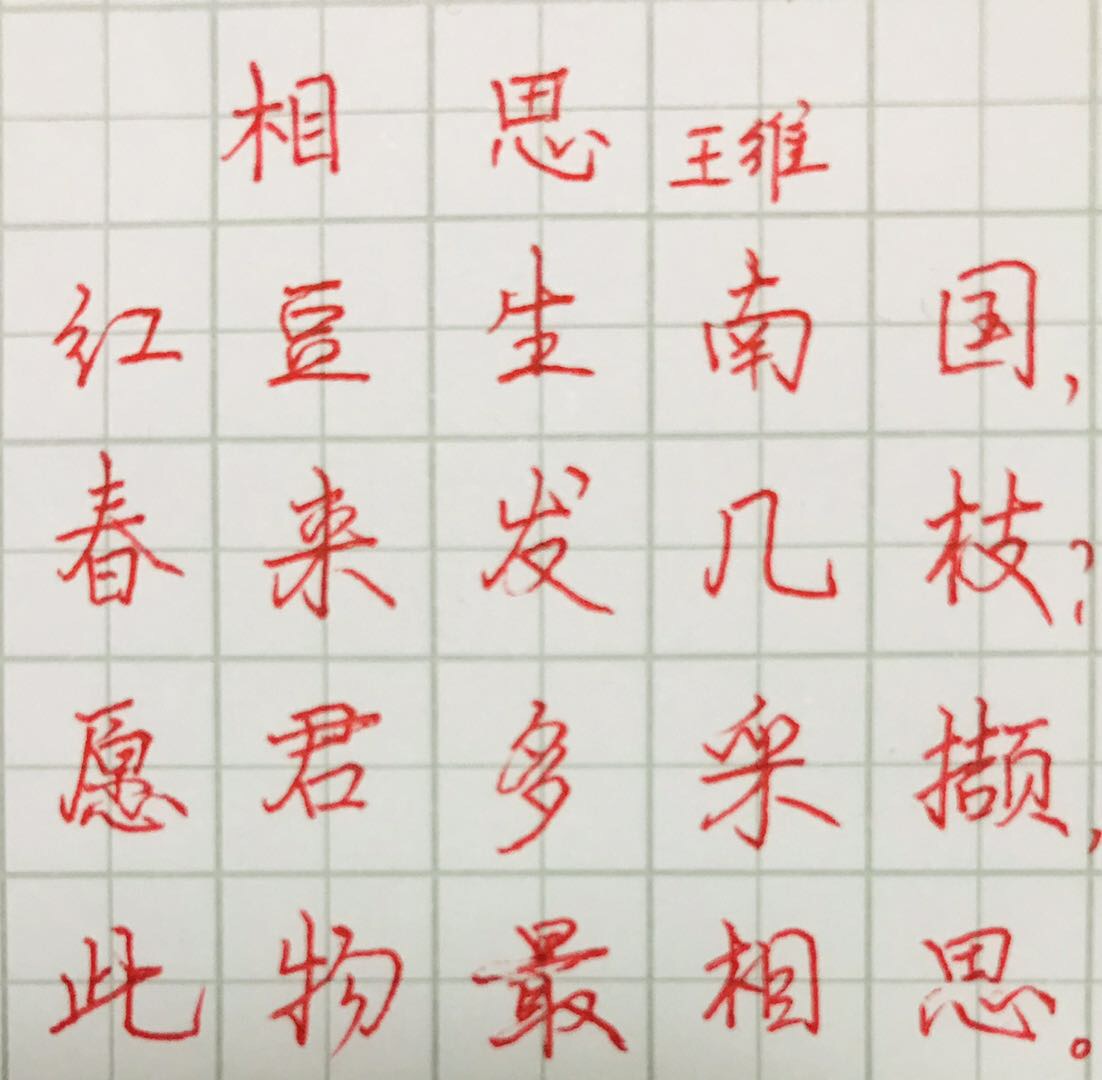 相思 王维
红豆生南国,
春来发几枝?
愿君多采撷,
此物最相思。